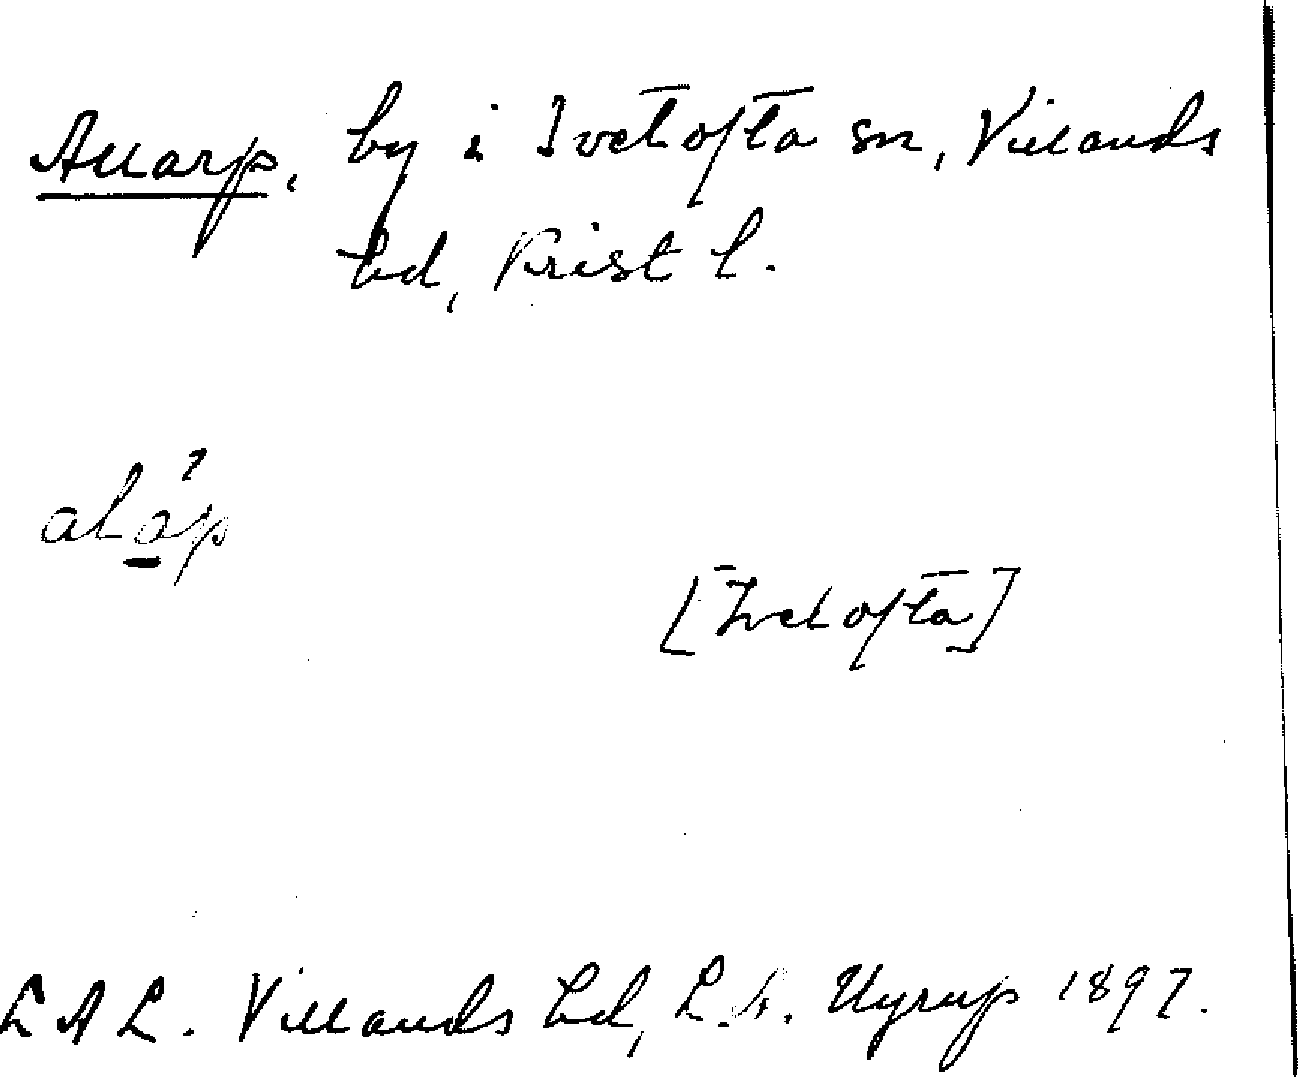 Allarp, by i Ivetofta sn, Villands
hd, Krist l.
alap
[Ivetofta]
LAL. Villands hd,
1897.